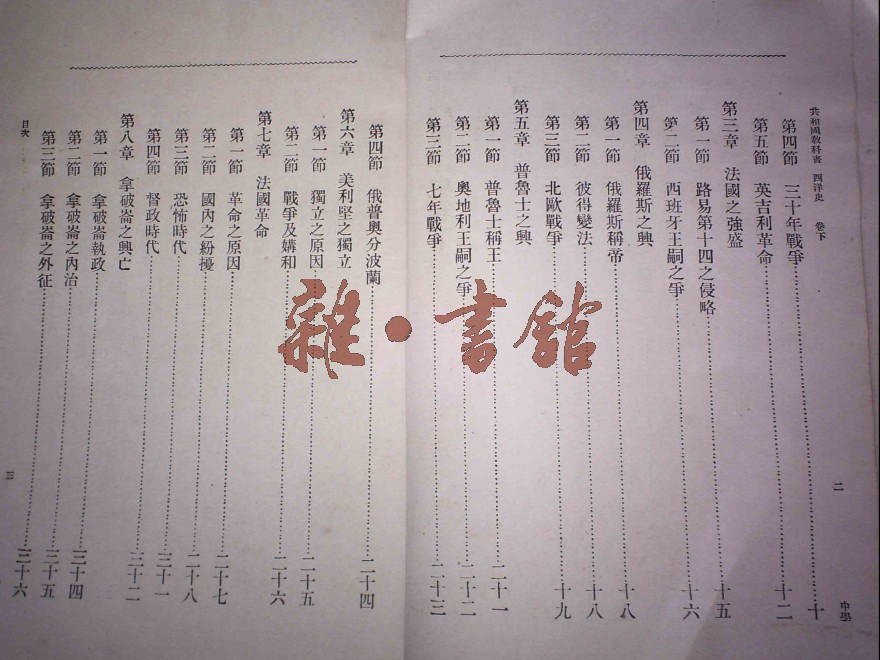 共和國敎科書 西洋史 卷下
第四節 三十年戰爭 十
第五節 英吉利革命 十二
第三章 法國之強盛
第一節 路易第十四之侵略 十五
第二節 西班牙王嗣之爭 十六
第四章 俄羅斯之興
第一節 俄羅斯稱帝 十八
第二節 彼得變法 十八
第三節 北歐戰爭 十九
第五章 普魯士之興
第一節 普魯士稱王 二十一
第二節 奧地利王嗣之爭 二十二
第三節 七年戰爭 二十三
二
中學
第四節 俄普奧分波蘭 二十四
第六章 美利堅之獨立
第一節 獨立之原因 二十五
第二節 戰爭及媾和 二十六
第七章 法國革命
第一節 革命之原因 二十七
第二節 國內之紛擾 二十八
第三節 恐怖時代 三十一
第四節 督政時代 三十二
第八章 拿破崙之興亡
第一節 拿破崙執政 三十四
第二節 拿破崙之內治 三十五
第三節 拿破崙之外征 三十六
目次
三
雜·書館